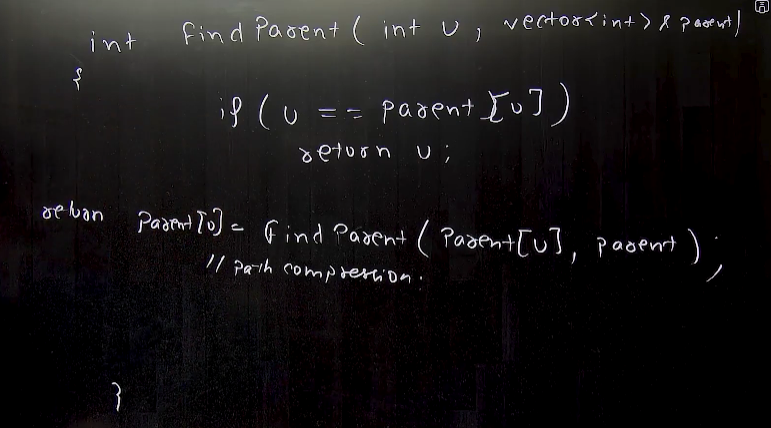 int findParent ( int u , vector<int> & parent)
{
if ( u == parent [u] )
return u ;
return parent[u] = findParent ( Parent[u] , parent ) ;
// path compression .
}